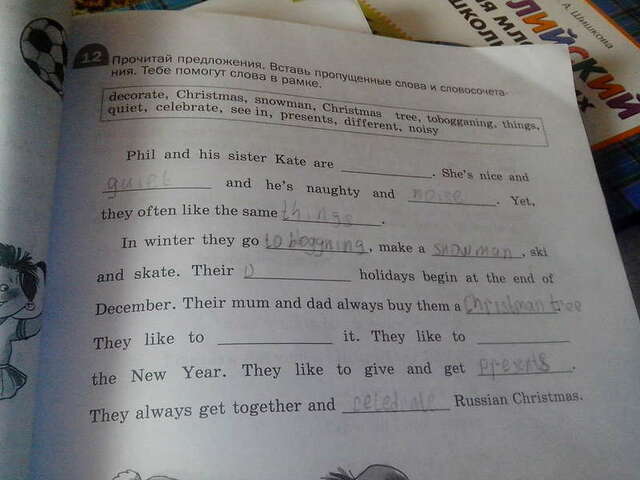 А. Шишкова
12 Прочитай предложения. Вставь пропущенные слова и словосочета-
ния. Тебе помогут слова в рамке.
decorate, Christmas, snowman, Christmas tree, tobogganing, things,
quiet, celebrate, see in, presents, different, noisy
Phil and his sister Kate are ____________. She's nice and
quiet and he's naughty and noise. Yet,
they often like the same things.
In winter they go toboggning, make a snowman, ski
and skate. Their ____________ holidays begin at the end of
December. Their mum and dad always buy them a Christman tree
They like to ____________ it. They like to ____________
the New Year. They like to give and get presents.
They always get together and celebrate Russian Christmas.